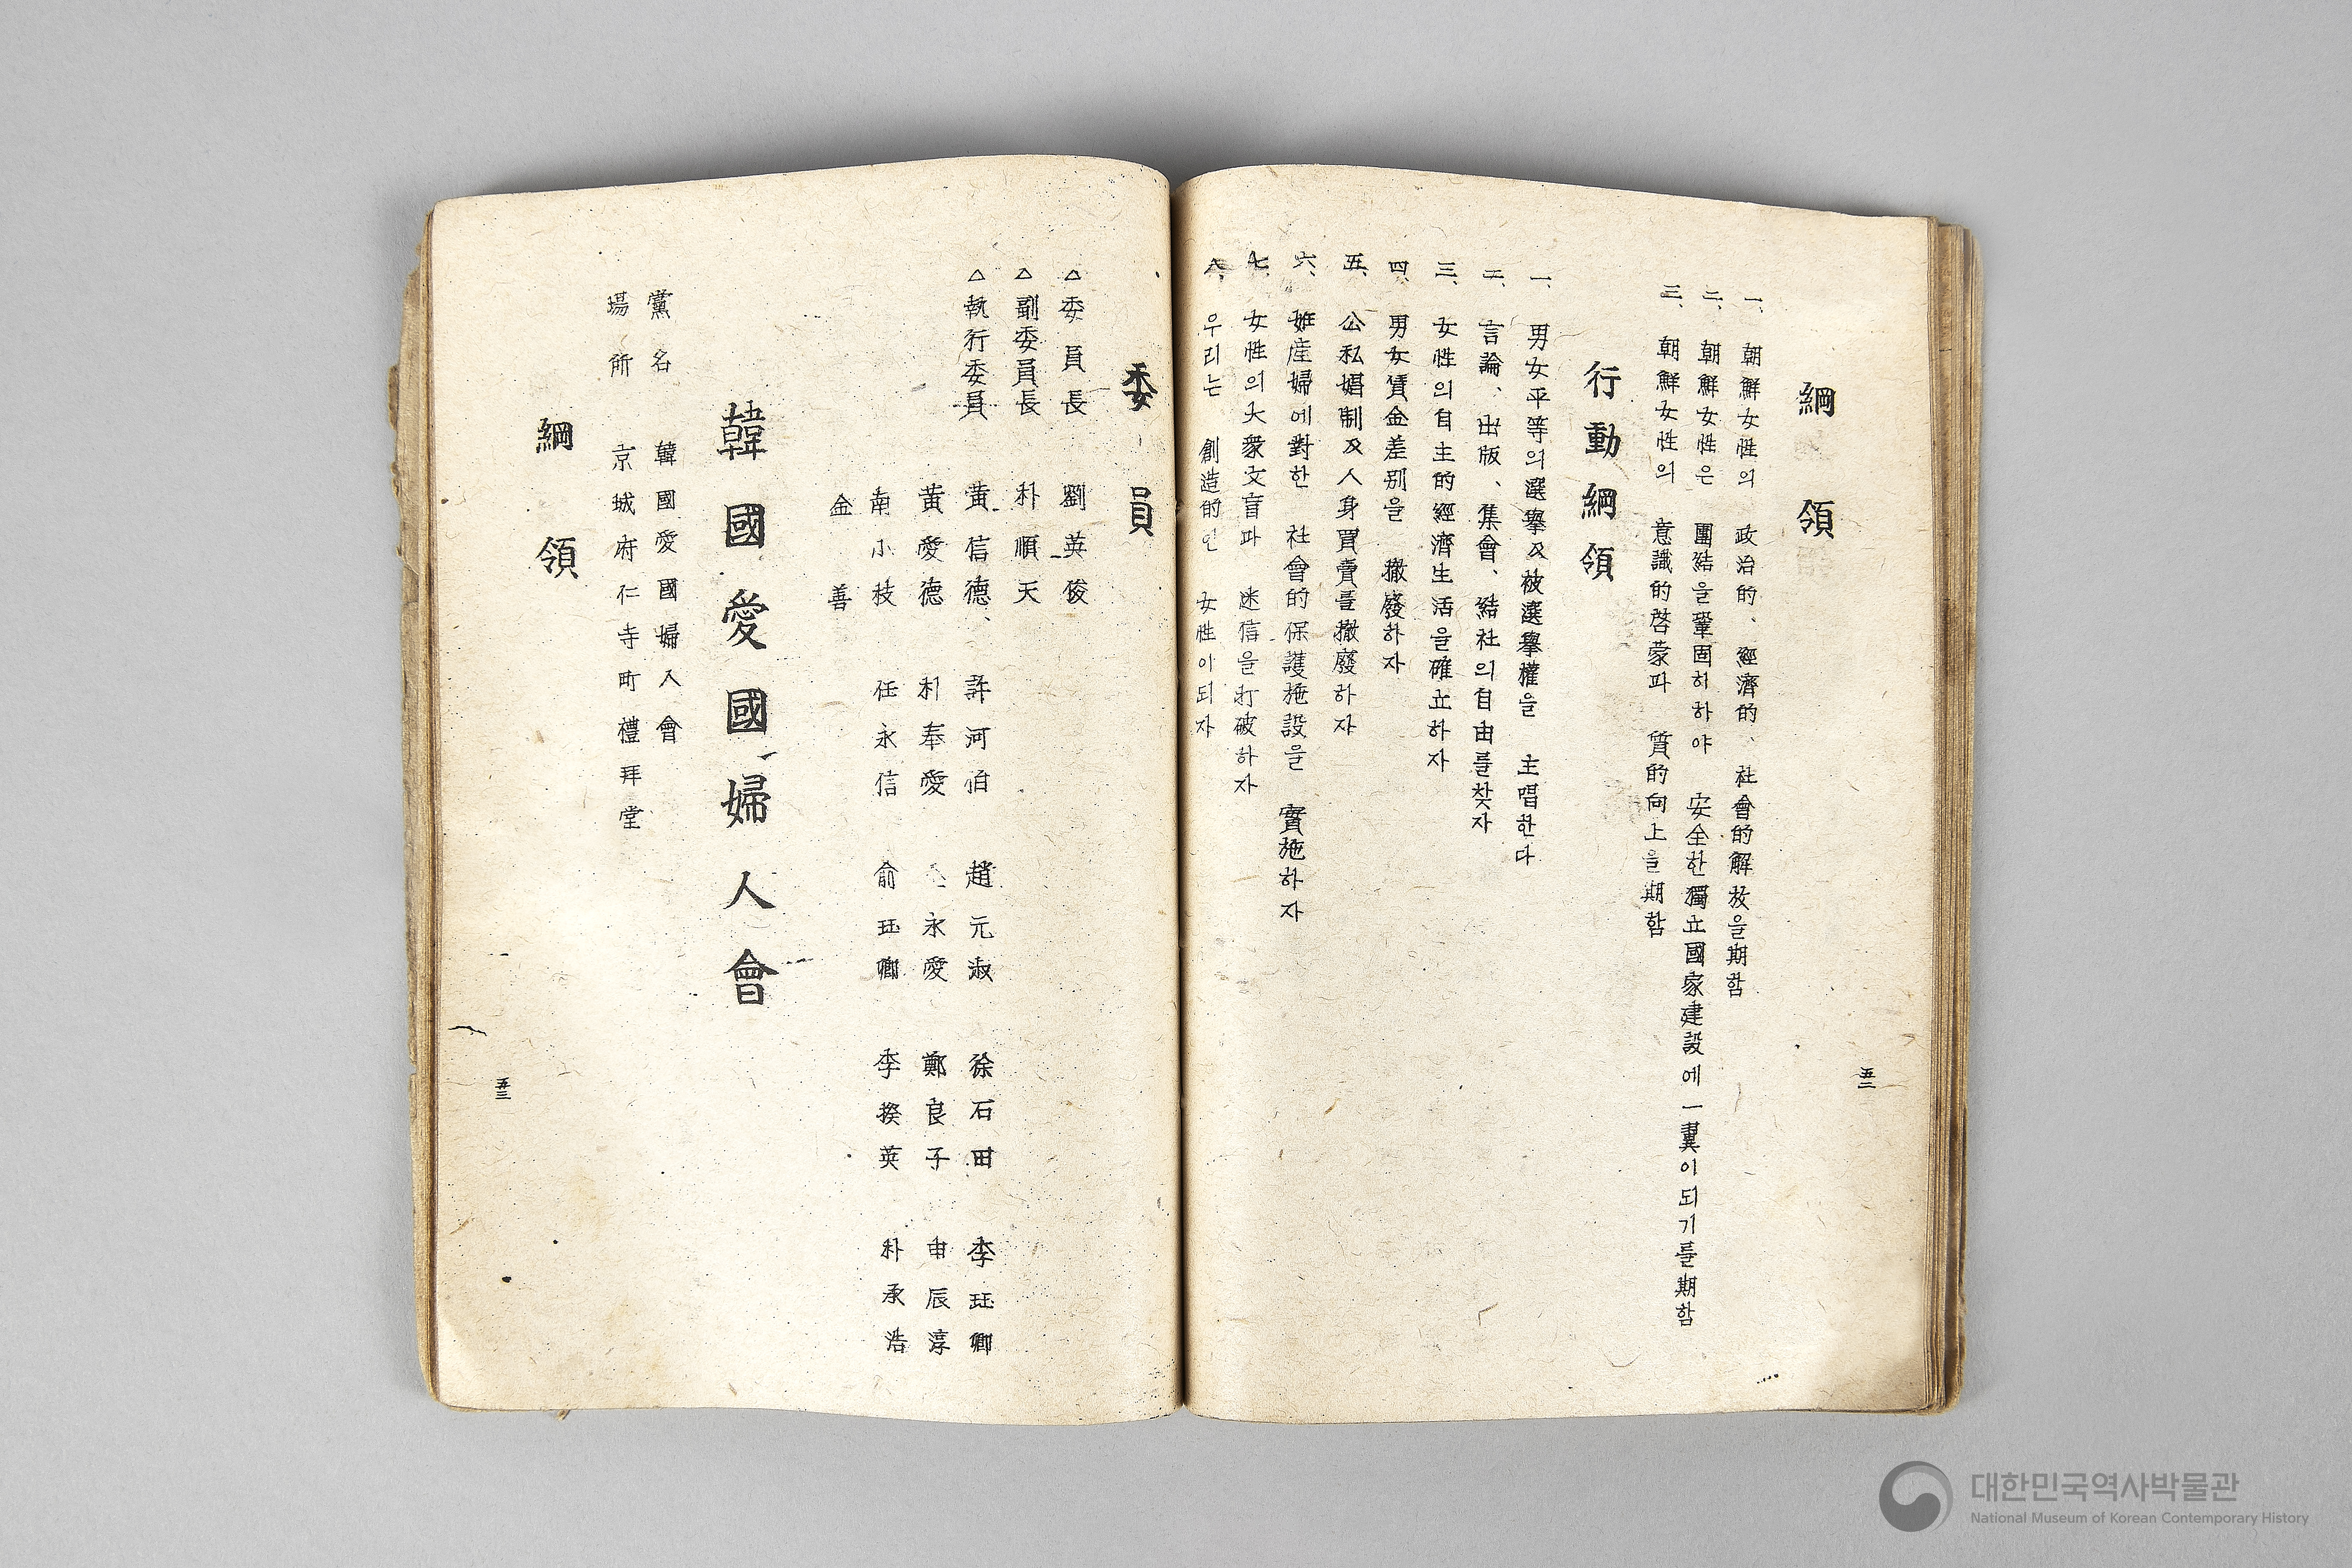 綱領
一、朝鮮女性의 政治的、經濟的、社會的解放을期함
二、朝鮮女性은 團結을鞏固히하야 安全한獨立國家建設에一翼이되기를期함
三、朝鮮女性의 意識的啓蒙과 質的向上을期함
行動綱領
一、男女平等의選擧及被選擧權을 主唱한다
二、言論、出版、集會、結社의自由를찾자
三、女性의自主的經濟生活을確立하자
四、男女賃金差别을 撤廢하자
五、公私娼制及人身買賣를撤廢하자
六、姙産婦에對한 社會的保護施設을 實施하자
七、女性의大衆文盲과 迷信을打破하자
八、우리는 創造的인 女性이되자
五二
委員
△委員長 劉英俊
△副委員長 朴順天
△執行委員 黃信德、 許河伯 趙元淑 徐石田 李珏卿
黃愛德 朴奉愛 永愛 鄭良子 申辰淳
南小枝 任永信 俞珏卿 李揆英 朴承浩
金善
韓國愛國婦人會
黨名 韓國愛國婦人會
場所 京城府仁寺町禮拜堂
綱領
五三
대한민국역사박물관
National Museum of Korean Contemporary History